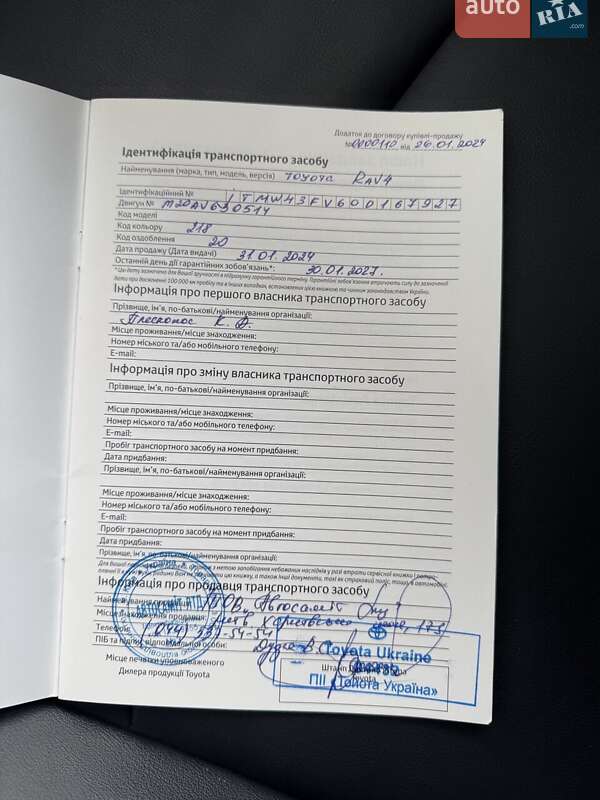 auto RIA .com
Додаток до договору купівлі-продажу
№ 0000110 від 26.01.2024
Ідентифікація транспортного засобу
Найменування (марка, тип, модель, версія) TOYOTA RAV4
Ідентифікаційний № JTMW43FV60D167927
Двигун № M20AV630514
Код моделі
Код кольору 218
Код оздоблення 20
Дата продажу (Дата видачі) 31.01.2024
Останній день дії гарантійних зобов'язань*: 30.01.2027.
*Цю дату зазначено для Вашої зручності в відрахунку гарантійного терміну. Гарантійні зобов'язання втрачають силу до зазначеної
дати при досягненні 100 000 км пробігу та в інших випадках, встановлених цією книжкою та чинним законодавством України.
Інформація про першого власника транспортного засобу
Прізвище, ім'я, по-батькові/найменування організації:
К. Ф.
Місце проживання/місце знаходження:
Номер міського та/або мобільного телефону:
E-mail:
Інформація про зміну власника транспортного засобу
Прізвище, ім'я, по-батькові/найменування організації:
Місце проживання/місце знаходження:
Номер міського та/або мобільного телефону:
E-mail:
Пробіг транспортного засобу на момент придбання:
Дата придбання:
Прізвище, ім'я, по-батькові/найменування організації:
Місце проживання/місце знаходження:
Номер міського та/або мобільного телефону:
E-mail:
Пробіг транспортного засобу на момент придбання:
Дата придбання:
Прізвище, ім'я, по-батькові/найменування організації:
Для Вашої з метою запобігання небажаних наслідків у разі втрати сервісної книжки
цю книжку, а також інші документи, такі як страховий поліс, тощо, в автомобілі.
Інформація про продавця транспортного засобу
Найменування ТОВ "Автосаміт
Місце знаходження продавця: Київ, Харківське шосе, 179
Телефон: (044) 339-54-54
ПІБ та підпис відповідальної особи:
АВТОСАМІТ ЛТД
Toyota Ukraine
ПІІ «Тойота Україна»
Місце печатки уповноваженого
Дилера продукції Toyota
Toyota